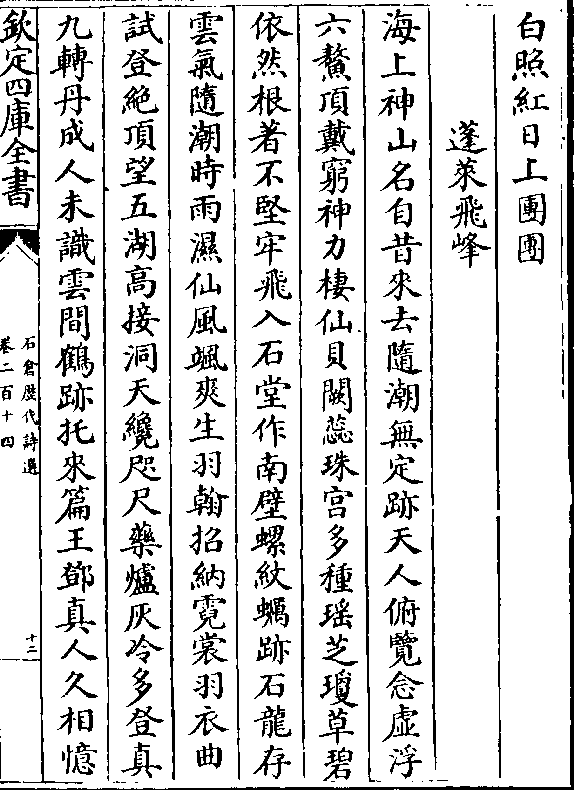 白照紅日上團團
蓬萊飛峰
海上神山名自昔來去隨潮無定跡天人俯覽念虛浮
六鰲頂戴窮神力棲仙貝闕蕊珠宮多種瑶芝瓊草碧
依然根著不堅牢飛入石堂作南壁螺紋蠣跡石龍存
雲氣隨潮時雨濕仙風颯爽生羽翰招納霓裳羽衣曲
試登絶頂望五湖高接洞天纔咫尺藥爐灰冷多登真
九轉丹成人未識雲間鶴跡托來篇王鄧真人久相憶
欽定四庫全書
石倉歷代詩選
卷二百十四
十二